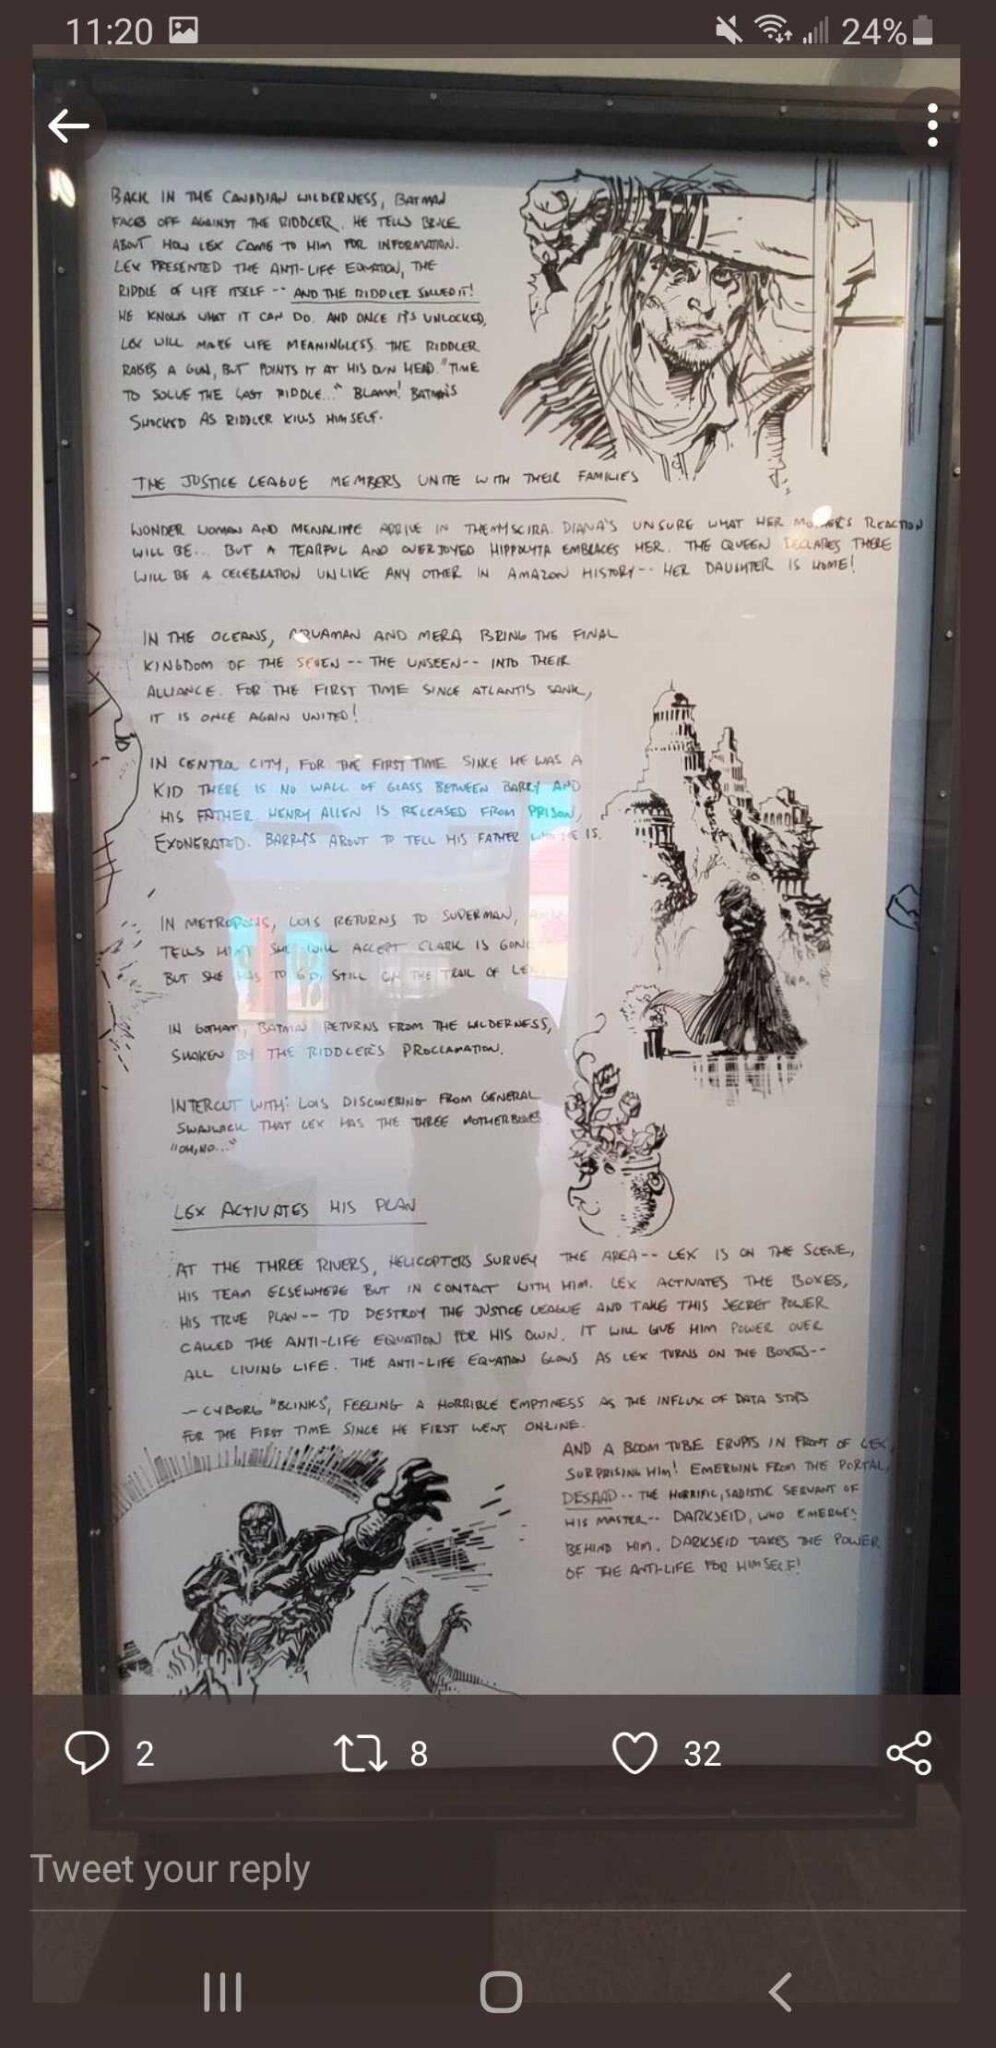 11:20
24%
BACK IN THE CANADIAN WILDERNESS, BATMAN
FACES OFF AGAINST THE RIDDLER. HE TELLS BRUCE
ABOUT HOW LEX CAME TO HIM FOR INFORMATION.
LEX PRESENTED THE ANTI-LIFE EQUATION, THE
RIDDLE OF LIFE ITSELF -- AND THE RIDDLER SOLVED IT!
HE KNOWS WHAT IT CAN DO. AND ONCE IT'S UNLOCKED,
LEX WILL MAKE LIFE MEANINGLESS. THE RIDDLER
RAISES A GUN, BUT POINTS IT AT HIS OWN HEAD. "TIME
TO SOLVE THE LAST RIDDLE..." BLAMM! BATMAN'S
SHOCKED AS RIDDLER KILLS HIMSELF.
THE JUSTICE LEAGUE MEMBERS UNITE WITH THEIR FAMILIES
WONDER WOMAN AND MENALIPPE ARRIVE IN THEMYSCIRA. DIANA'S UNSURE WHAT HER MOTHER'S REACTION
WILL BE... BUT A TEARFUL AND OVERJOYED HIPPOLYTA EMBRACES HER. THE QUEEN DECLARES THERE
WILL BE A CELEBRATION UNLIKE ANY OTHER IN AMAZON HISTORY -- HER DAUGHTER IS HOME!
IN THE OCEANS, AQUAMAN AND MERA BRING THE FINAL
KINGDOM OF THE SEVEN -- THE UNSEEN -- INTO THEIR
ALLIANCE. FOR THE FIRST TIME SINCE ATLANTIS SANK,
IT IS ONCE AGAIN UNITED!
IN CENTRAL CITY, FOR THE FIRST TIME SINCE HE WAS A
KID THERE IS NO WALL OF GLASS BETWEEN BARRY AND
HIS FATHER. HENRY ALLEN IS RELEASED FROM PRISON,
EXONERATED. BARRY'S ABOUT TO TELL HIS FATHER IS.
IN METROPOLIS, LOIS RETURNS TO SUPERMAN,
TELLS HIM SHE WILL ACCEPT CLARK IS GONE
BUT SHE HAS TO GO, STILL ON THE TRAIL OF LEX
IN GOTHAM, BATMAN RETURNS FROM THE WILDERNESS,
SHAKEN BY THE RIDDLER'S PROCLAMATION.
INTERCUT WITH: LOIS DISCOVERING FROM GENERAL
SWANWICK THAT LEX HAS THE THREE MOTHERBOXES
"OH, NO..."
LEX ACTIVATES HIS PLAN
AT THE THREE RIVERS, HELICOPTERS SURVEY THE AREA -- LEX IS ON THE SCENE,
HIS TEAM ELSEWHERE BUT IN CONTACT WITH HIM. LEX ACTIVATES THE BOXES,
HIS TRUE PLAN -- TO DESTROY THE JUSTICE LEAGUE AND TAKE THIS SECRET POWER
CALLED THE ANTI-LIFE EQUATION FOR HIS OWN. IT WILL GIVE HIM POWER OVER
ALL LIVING LIFE. THE ANTI-LIFE EQUATION GLOWS AS LEX TURNS ON THE BOXES--
-- CYBORG "BLINKS", FEELING A HORRIBLE EMPTINESS AS THE INFLUX OF DATA STOPS
FOR THE FIRST TIME SINCE HE FIRST WENT ONLINE.
AND A BOOM TUBE ERUPTS IN FRONT OF LEX,
SURPRISING HIM! EMERGING FROM THE PORTAL,
DESAAD -- THE HORRIFIC, SADISTIC SERVANT OF
HIS MASTER -- DARKSEID, WHO EMERGES
BEHIND HIM. DARKSEID TAKES THE POWER
OF THE ANTI-LIFE FOR HIMSELF!
2
8
32
Tweet your reply